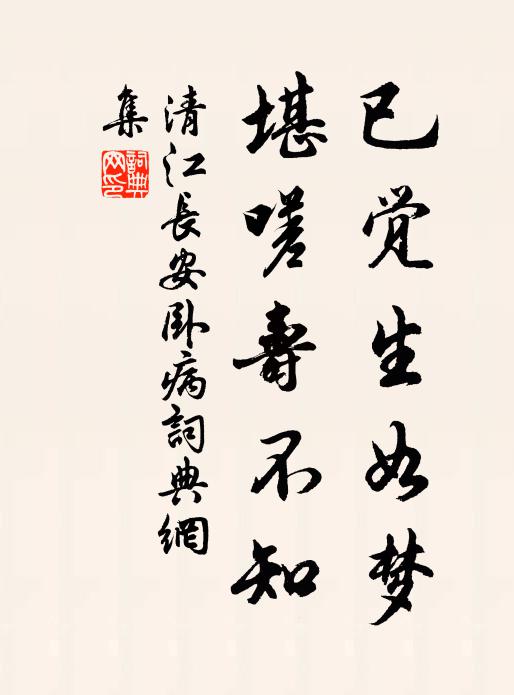 已觉生如梦
堪嗟寿不知
清江长安卧病詞典網
集
詞典
网印